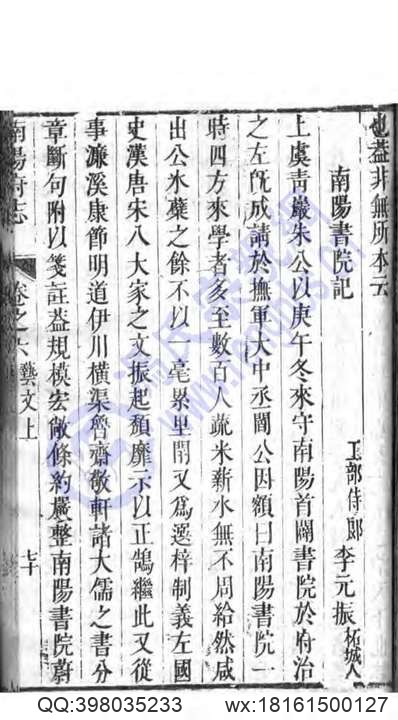 也蓋非無所本云
南陽書院記
工部侍郎李元振柘城人
上虞靑巖朱公以庚午冬來守南陽首闢書院於府治
之左旣成請於撫軍大中丞閻公因額曰南陽書院一
時四方來學者多至數百人蔬米薪水無不周給然咸
出公氷蘗之餘不以一毫累里閈又爲選梓制義左國
史漢唐宋八大家之文振起頽靡示以正鵠繼此又從
事濂溪康節明道伊川橫渠魯齋敬軒諸大儒之書分
章斷句附以箋註蓋規模宏敞條約嚴整南陽書院蔚
南陽府志 卷之六藝文上 七十
QQ:398035233 wx:18161500127